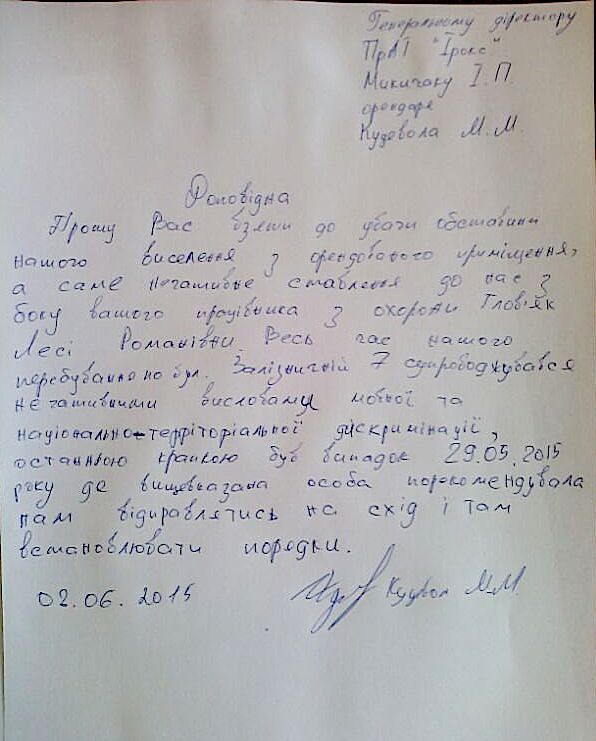 Генеральному діректору
ПрАТ "Ірокс"
Микичаку І.П.
орендаря
Кудевола М.М.
Доповідна
Прошу Вас взяти до уваги обставини
нашого виселення з орендованого приміщення,
а саме негативне ставлення до нас з
боку вашого працівника з охорони Гловяк
Лесі Романівни. Весь час нашого
перебування по вул. Залізничній 7 супроводжувався
негативними висловами мовної та
національно-терріторіальної дискримінації,
останньою крапкою був випадок 29.05.2015
року де вищевказана особа порекомендувала
нам відправлятись на схід і там
встановлювати порядки.
02.06.2015 М.М.